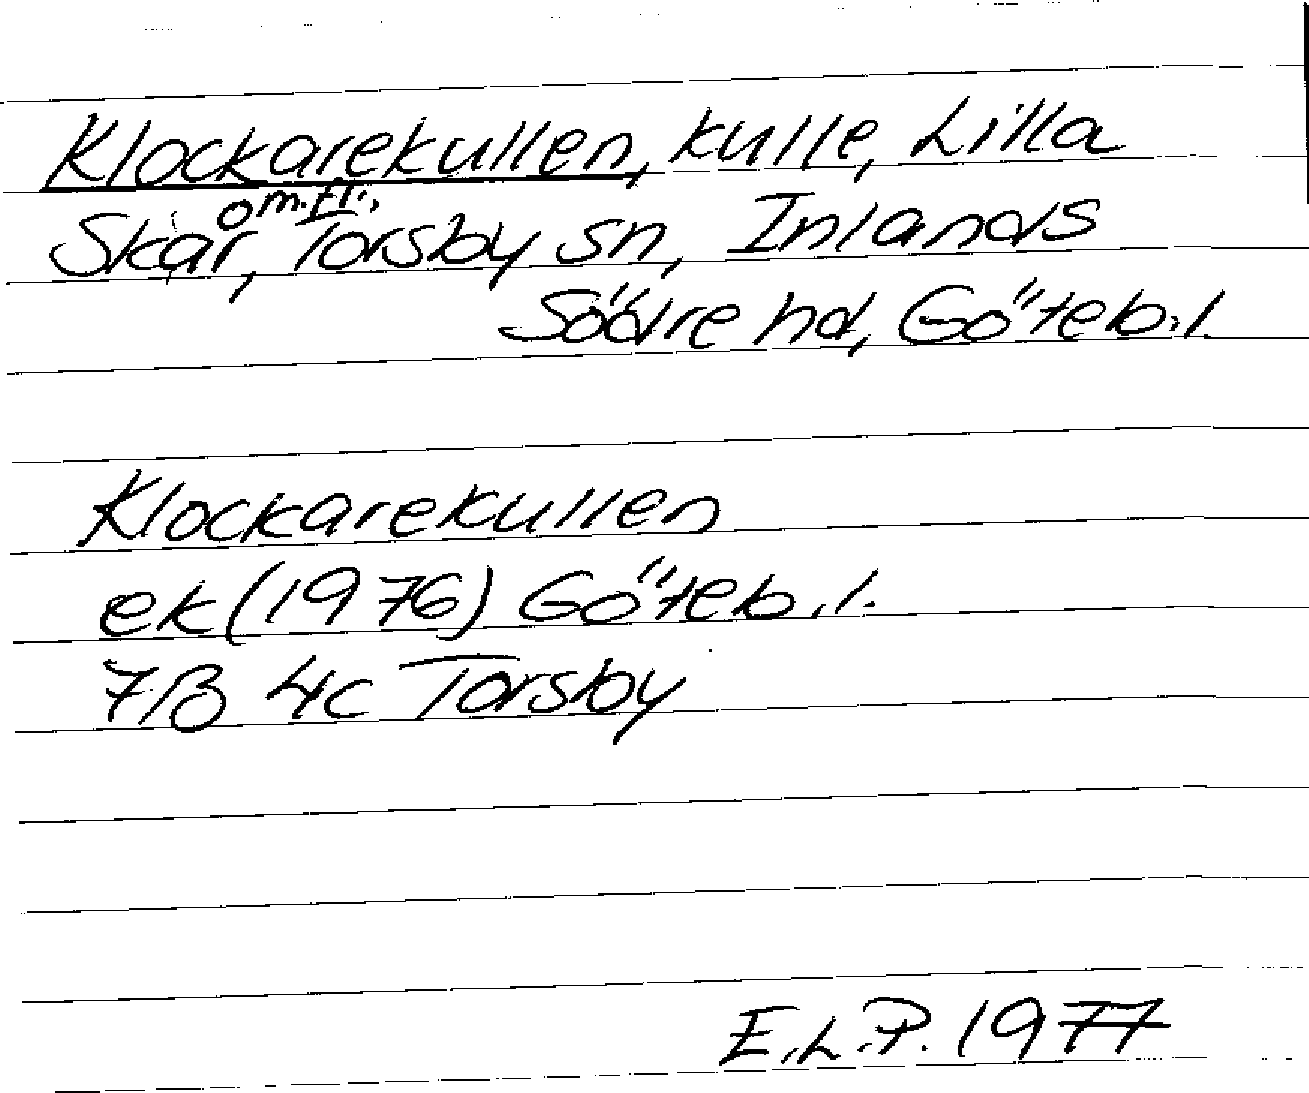 Klockarekullen, kulle, Lilla
Skår, m.fl., Torsby sn, Inlands
Södre hd, Göteb.l.
Klockarekullen
ek (1976) Göteb.l.
7B 4c Torsby
E.L.P. 1977